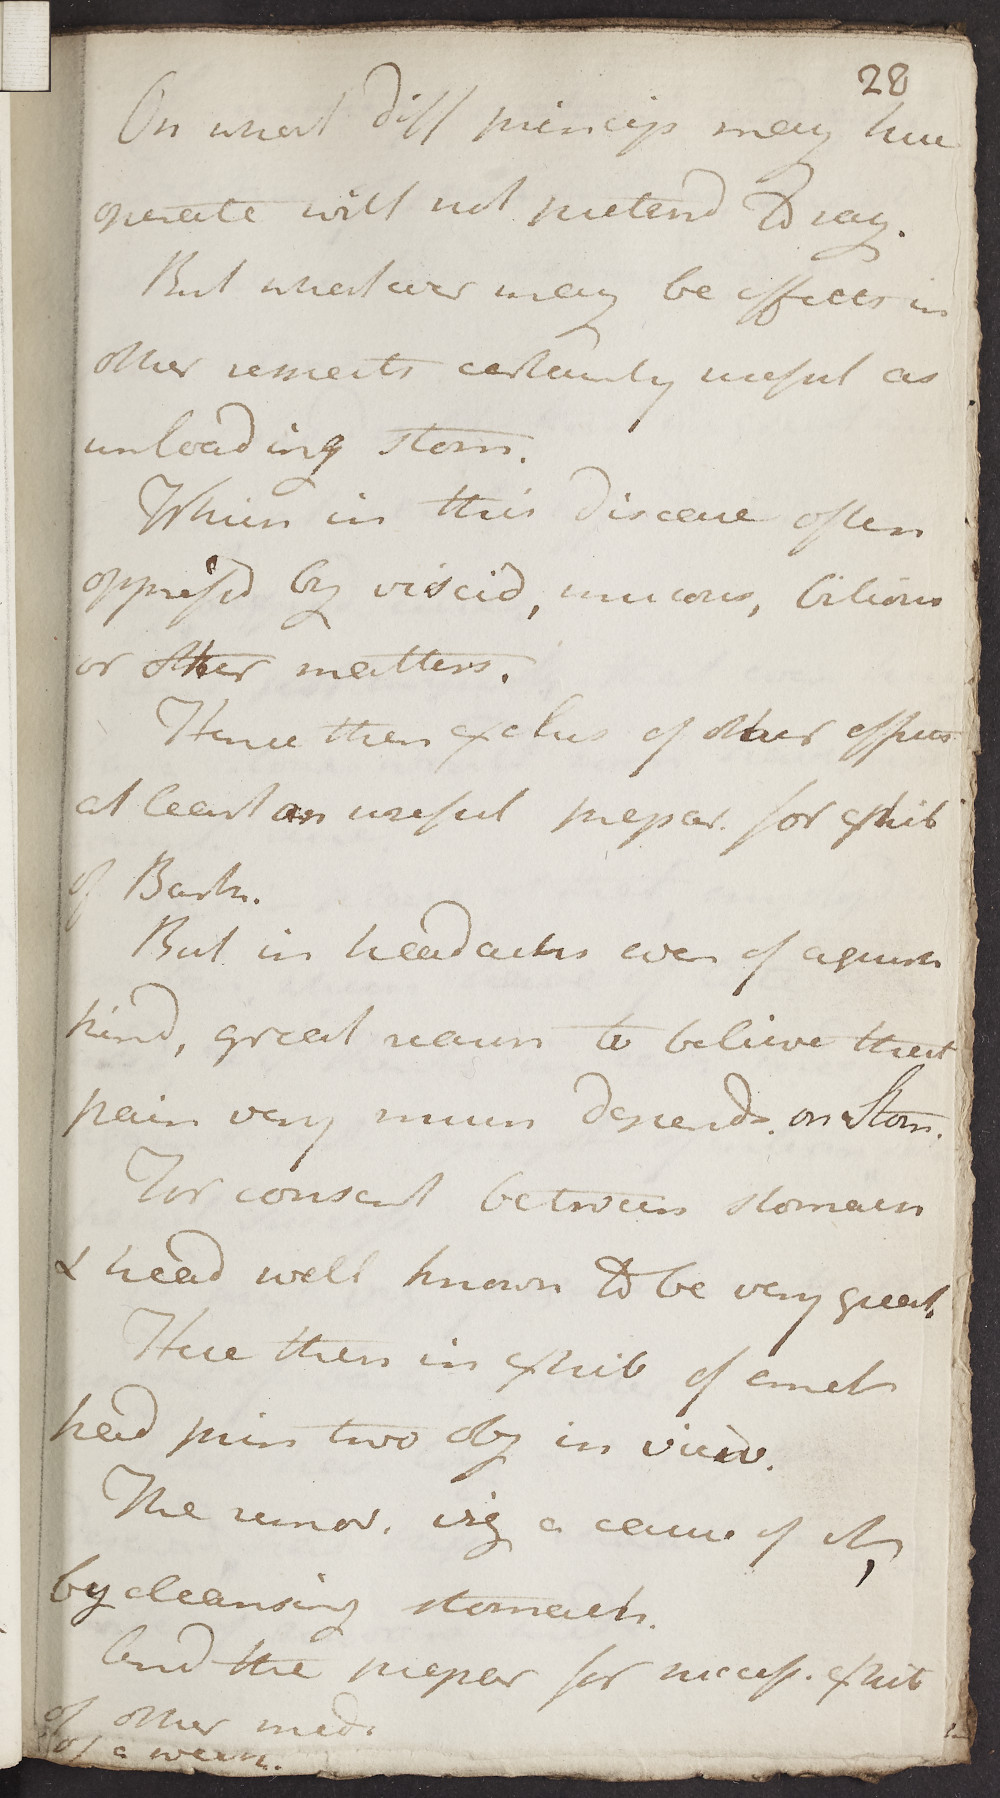 28
On what diff princip may here
operate will not pretend to say.
But whatever may be effects in
other respects certainly useful as
unloading stom.
Which in this disease often
oppress'd by viscid, mucous, bilious
or other matters.
Hence then exclus of other effects
at least an useful prepar. for exhib
of Bark.
But in headachs even of aguish
kind, great reason to believe that
pain very much depends on Stom.
For consent between stomach
& head well known to be very great.
Here then in exhib of emet
head prin two obj in view.
The remov. a cause of
by cleansing stomach.
And the prepar for success. exhib
of other med.
of a